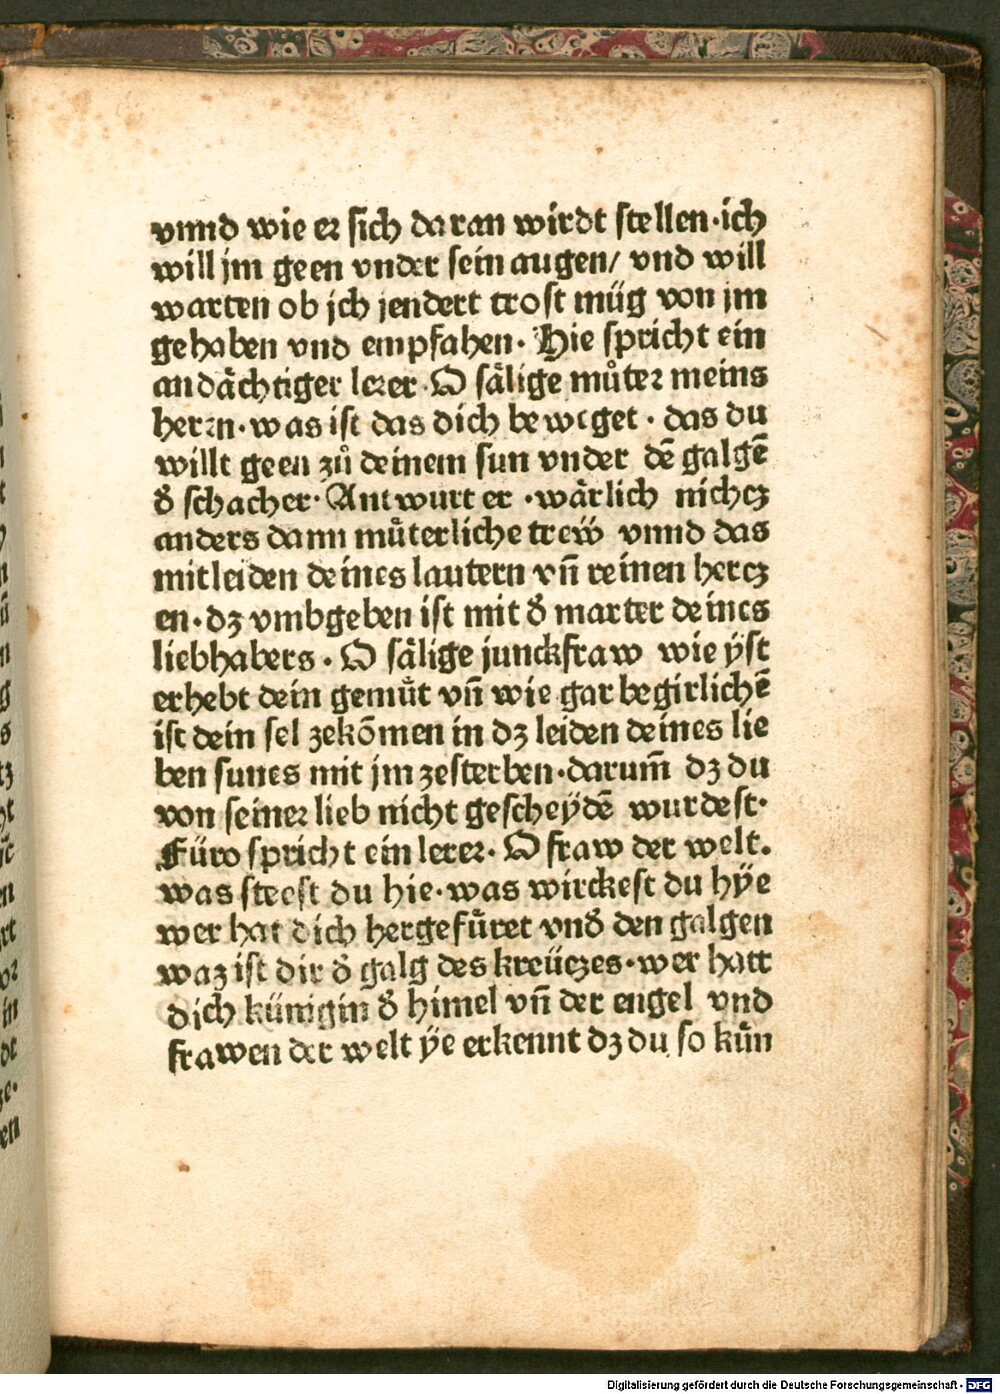 vnnd wie er sich daran wirdt stellen·ich
will jm geen vnder sein augen/ vnd will
warten ob jch jendert trost müg von jm
gehaben vnd empfahen· Hie spricht ein
andächtiger lerer·O sälige můter meins
herrn·was ist das dich beweget· das du
willt geen zů deinem sun vnder dē galgē
d̛ schacher·Antwurt er ·wärlich nichcz
anders dann můterliche treẅ vnnd das
mitleiden deines lautern vn̄ reinen hercz
en·dz vmbgeben ist mit d̛ marter deines
liebhabers·O sälige junckfraw wie ÿst
erhebt dein gemůt vn̄ wie gar begirlichē
ist dein sel zekōmen in dz leiden deines lie
ben sunes mit jm zesterben·darum̄ dz du
von seiner lieb nicht gescheÿdē wurdest·
Füro spricht ein lerer·O fraw der welt.
was steest du hie·was wirckest du hÿe
wer hat dich hergefüret vnd̛ den galgen
waz ist dir d̛ galg des kreüczes·wer hatt
dich künigin d̛ himel vn̄ der engel vnd
frawen der welt ÿe erkennt dz du so kün
Digitalisierung gefördert durch die Deutsche Forschungsgemeinschaft - DFG